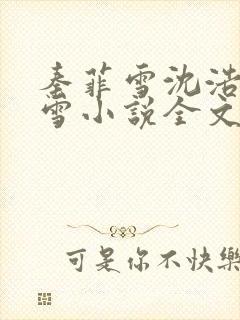 秦菲雪沈浩
雪小说全文
可是你不快樂